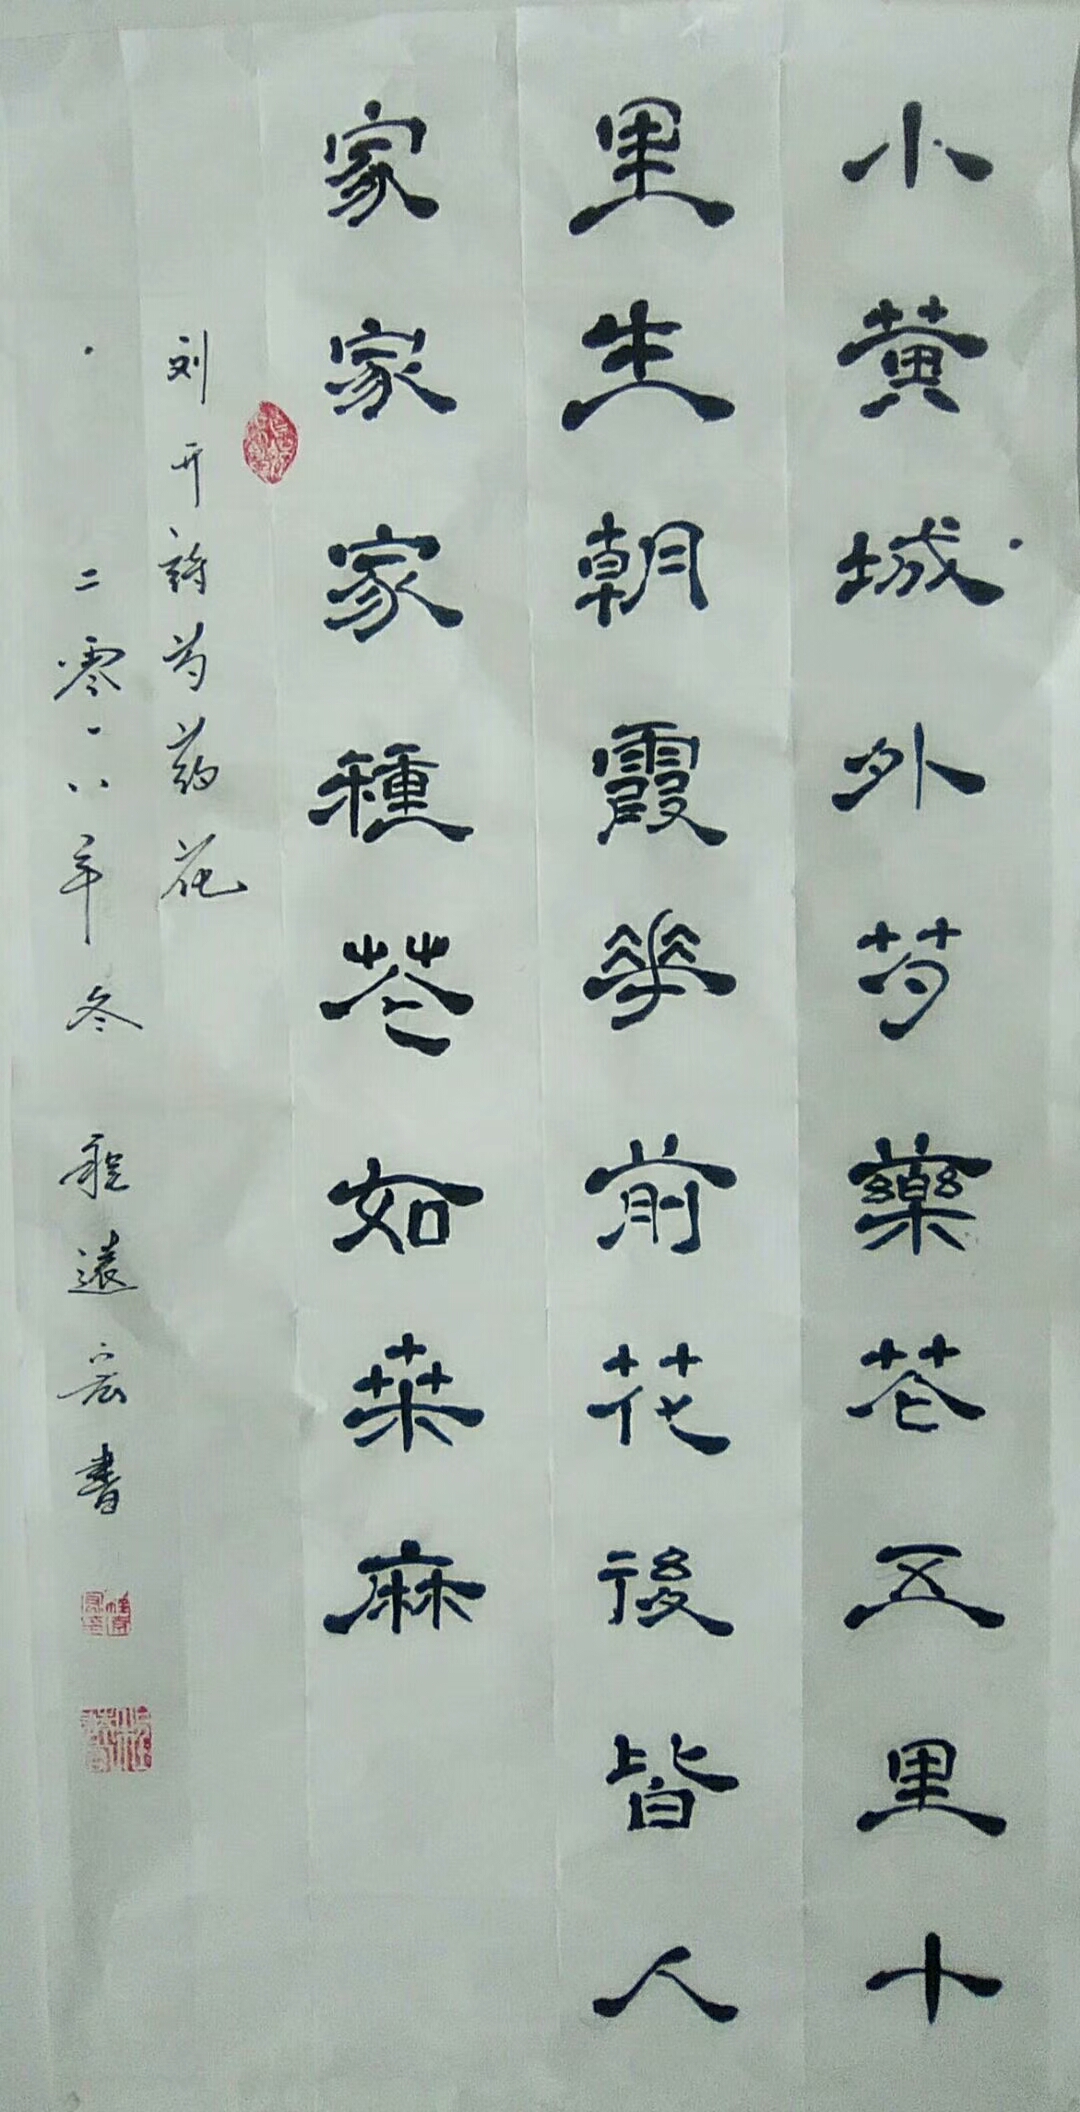 小黄城外芍藥花五里十
里生朝霞華前花後皆人
家家家種花如菜麻
刘开詩芍药花
二零一八年冬 程遠宏書